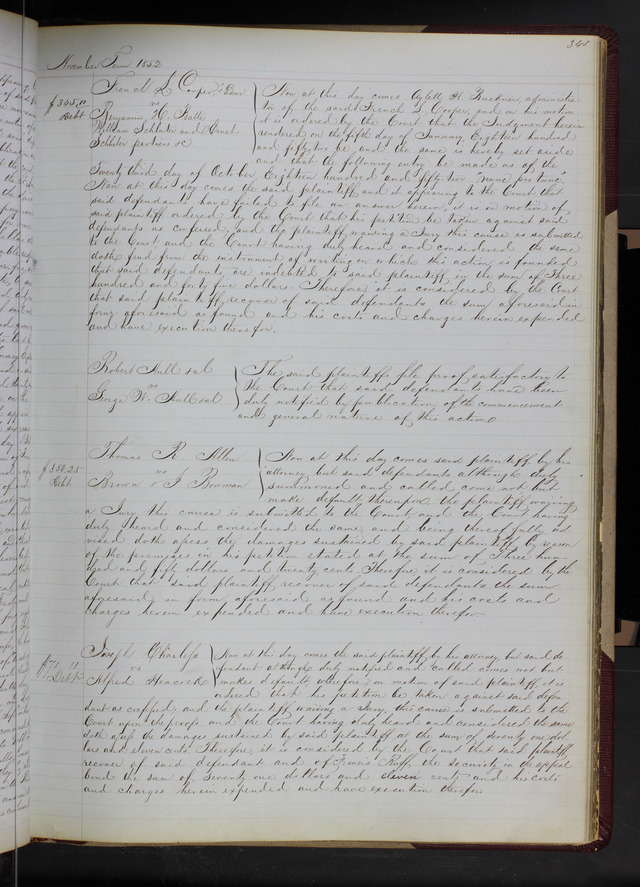 341
November Term 1852
French L Cooper's Admr
vs
Benjamin H. Batte
William Schlater and Ernst
Schlater partners &c
$345.00
Debt
Now at this day comes Aylett H. Buckner, administra
tor of the said French L Cooper, and on his motion
it is ordered by the Court that the Judgment herein
rendered on the fifth day of January Eighteen hundred
and fifty two be and the same is hereby set aside
and that the following entry be made as of the
Twenty third day of October Eighteen hundred and fifty two "nunc pro tunc"
Now at this day comes the said plaintiff, and it appearing to the Court that
said defendants have failed to file an answer herein, it is on motion of
said plaintiff ordered by the Court that his petition be taken against said
defendants as confessed, and the plaintiff waiving a Jury this cause is submitted
to the Court and the Court having duly heard and considered the same
doth find from the instrument of writing on which this action is founded
that said defendants are indebted to said plaintiff in the sum of Three
hundred and forty five dollars. Therefore it is considered by the Court
that said plaintiff recover of said defendants the sum aforesaid in
form aforesaid as found and his costs and charges herein expended
and have execution therefor.
Robert Hull et al
vs
George W. Hull et al
The said plaintiffs file proof satisfactory to
the Court that said defendants have been
duly notified by publication of the commencement
and general nature of this action
Thomas R Allen
vs
Brown & J Bowman
$350.25
Debt
Now at this day comes said plaintiff by his
attorney, but said defendants although duly
summoned and called, come not but
make default, therefore the plaintiff waiving
a Jury this cause is submitted to the Court and the Court having
duly heard and considered the same and being thereof fully ad
vised doth assess the damages sustained by said plaintiff by reason
of the premises in his petition stated at the sum of Three hun
dred and fifty dollars and twenty cents Therefore it is considered by the
Court that said plaintiff recover of said defendants the sum
aforesaid in form aforesaid as found and his costs and
charges herein expended and have execution therefor.
Joseph Charless
vs
Alfred Heacock
$71.11
Debt
Now at this day comes the said plaintiff by his attorney but said de
fendant although duly notified and called comes not but
makes default wherefore on motion of said plaintiff it is
ordered that his petition be taken against said defen
dant as confessed, and the plaintiff waiving a Jury, this cause is submitted to the
Court upon the proofs and the Court having duly heard and considered the same
doth assess the damages sustained by said plaintiff at the sum of seventy one dol
lars and eleven cents. Therefore it is considered by the Court that said plaintiff
recover of said defendant and of Francis Ruff, the security in the appeal
bond the sum of Seventy one dollars and eleven cents and his costs
and charges herein expended and have execution therefor